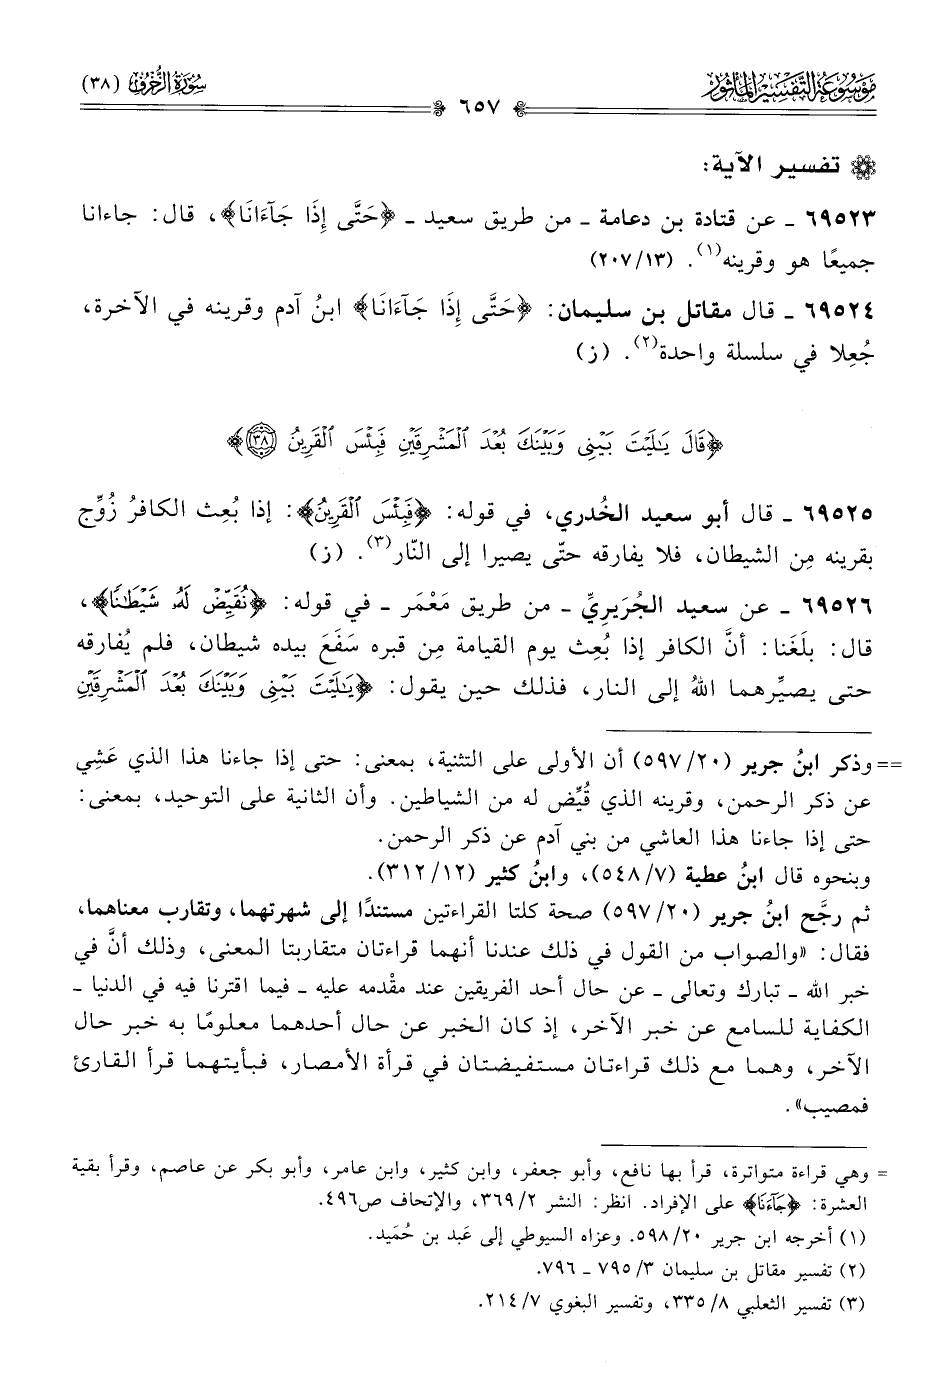 موسوعة التفسير المأثور
سورة الزخرف (٣٨)
٦٥٧
تفسير الآية:
٦٩٥٢٣ ـ عن قتادة بن دعامة ـ من طريق سعيد ـ ﴿حَتَّى إِذَا جَآءَانَا﴾، قال: جاءانا
جميعًا هو وقرينه(١). (٢٠٧/١٣)
٦٩٥٢٤ ـ قال مقاتل بن سليمان: ﴿حَتَّى إِذَا جَآءَانَا﴾ ابنُ آدم وقرينه في الآخرة،
جُعِلا في سلسلة واحدة(٢). (ز)
﴿قَالَ يَٰلَيْتَ بَيْنِى وَبَيْنَكَ بُعْدَ ٱلْمَشْرِقَيْنِ فَبِئْسَ ٱلْقَرِينُ ٣٨﴾
٦٩٥٢٥ ـ قال أبو سعيد الخُدري، في قوله: ﴿فَبِئْسَ ٱلْقَرِينُ﴾: إذا بُعِث الكافرُ زُوِّج
بقرينه مِن الشيطان، فلا يفارقه حتّى يصيرا إلى النّار(٣). (ز)
٦٩٥٢٦ ـ عن سعيد الجُرَيريِّ ـ من طريق مَعْمَر ـ في قوله: ﴿نُقَيِّضْ لَهُۥ شَيْطَٰنًا﴾،
قال: بلَغَنا: أنَّ الكافر إذا بُعِث يوم القيامة مِن قبره سَفَعَ بيده شيطان، فلم يُفارقه
حتى يصيِّرهما اللهُ إلى النار، فذلك حين يقول: ﴿يَٰلَيْتَ بَيْنِى وَبَيْنَكَ بُعْدَ ٱلْمَشْرِقَيْنِ
== وذكر ابنُ جرير (٥٩٧/٢٠) أن الأولى على التثنية، بمعنى: حتى إذا جاءنا هذا الذي عَشِي
عن ذكر الرحمن، وقرينه الذي قُيِّض له من الشياطين. وأن الثانية على التوحيد، بمعنى:
حتى إذا جاءنا هذا العاشي من بني آدم عن ذكر الرحمن.
وبنحوه قال ابنُ عطية (٥٤٨/٧)، وابنُ كثير (٣١٢/١٢).
ثم رجَّح ابنُ جرير (٥٩٧/٢٠) صحة كلتا القراءتين مستندًا إلى شهرتهما، وتقارب معناهما،
فقال: «والصواب من القول في ذلك عندنا أنهما قراءتان متقاربتا المعنى، وذلك أنَّ في
خبر الله ـ تبارك وتعالى ـ عن حال أحد الفريقين عند مقْدمه عليه ـ فيما اقترنا فيه في الدنيا ـ
الكفاية للسامع عن خبر الآخر، إذ كان الخبر عن حال أحدهما معلومًا به خبر حال
الآخر، وهما مع ذلك قراءتان مستفيضتان في قرأة الأمصار، فبأيتهما قرأ القارئ
فمصيب».
= وهي قراءة متواترة، قرأ بها نافع، وأبو جعفر، وابن كثير، وابن عامر، وأبو بكر عن عاصم، وقرأ بقية
العشرة: ﴿جَآءَنَا﴾ على الإفراد. انظر: النشر ٣٦٩/٢، والإتحاف ص٤٩٦.
(١) أخرجه ابن جرير ٥٩٨/٢٠. وعزاه السيوطي إلى عَبد بن حُمَيد.
(٢) تفسير مقاتل بن سليمان ٧٩٥/٣ ـ ٧٩٦.
(٣) تفسير الثعلبي ٣٣٥/٨، وتفسير البغوي ٢١٤/٧.